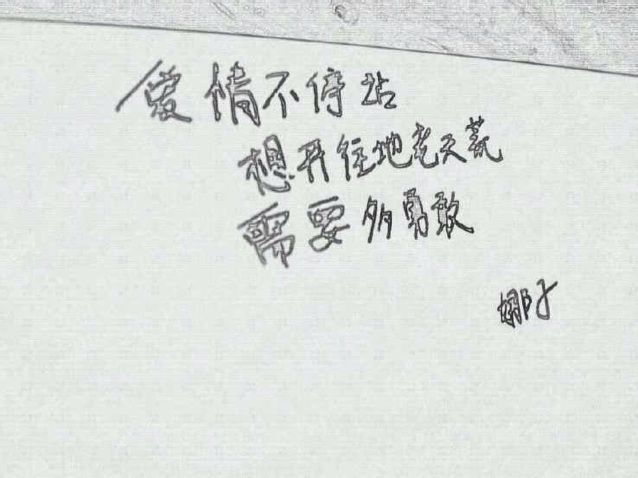 爱情不停站
想开往地老天荒
需要多勇敢
娜子